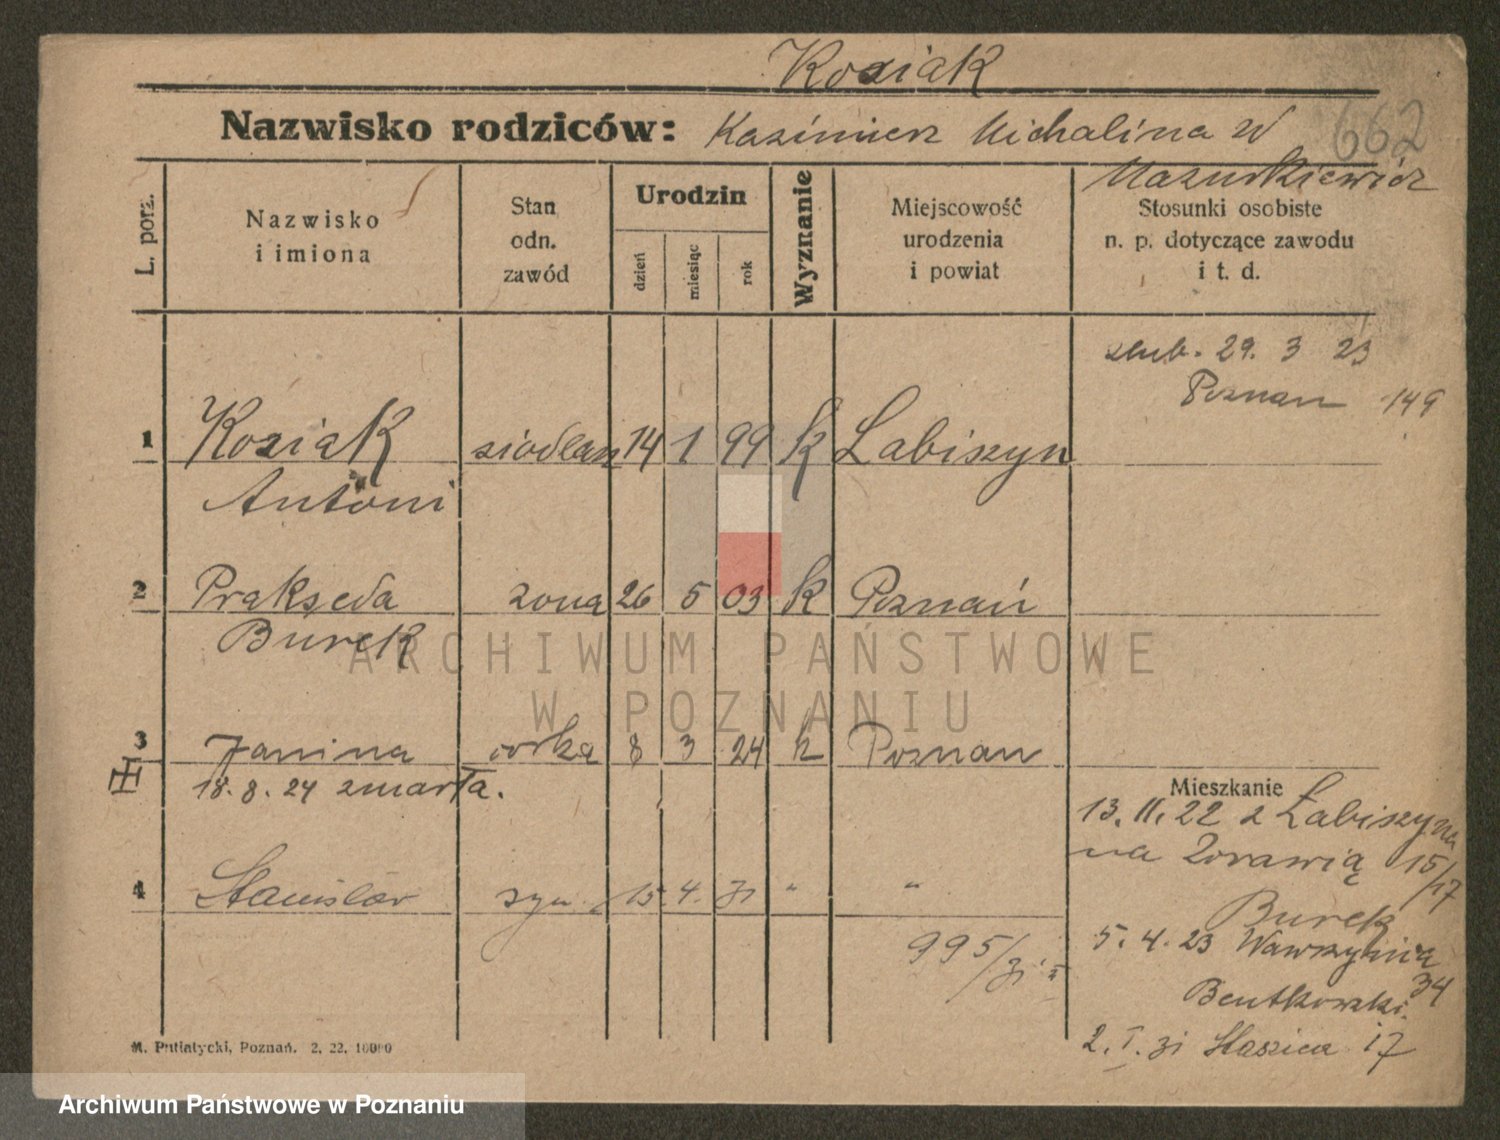 Koziak
Nazwisko rodziców: Kazimierz Michalina z
Mazurkiewicz
662
L. porz.
Nazwisko
i imiona
Stan
odn.
zawód
Urodzin
dzień
miesiąc
rok
Wyznanie
Miejscowość
urodzenia
i powiat
Stosunki osobiste
n. p. dotyczące zawodu
i t. d.
slub. 29. 3 23
Poznan 149
1 Koziak siodlarz 14 1 99 k Łabiszyn
Antoni
2 Prakseda zona 26 5 03 k Poznań
Burek
3 Janina corka 8 3 24 k Poznan
18. 8. 24 zmarła.
Mieszkanie
13. 11. 22 z Łabiszyna
na Zorawią 15/17
Burek
4 Stanisław syn 15. 4. 31 " "
995/31
5. 4. 23 Wawrzynia
34
Bentkowski.
2. I. 31 Staszica 17
M. Putiatycki, Poznań. 2. 22. 10000
ARCHIWUM PAŃSTWOWE
W POZNANIU
Archiwum Państwowe w Poznaniu